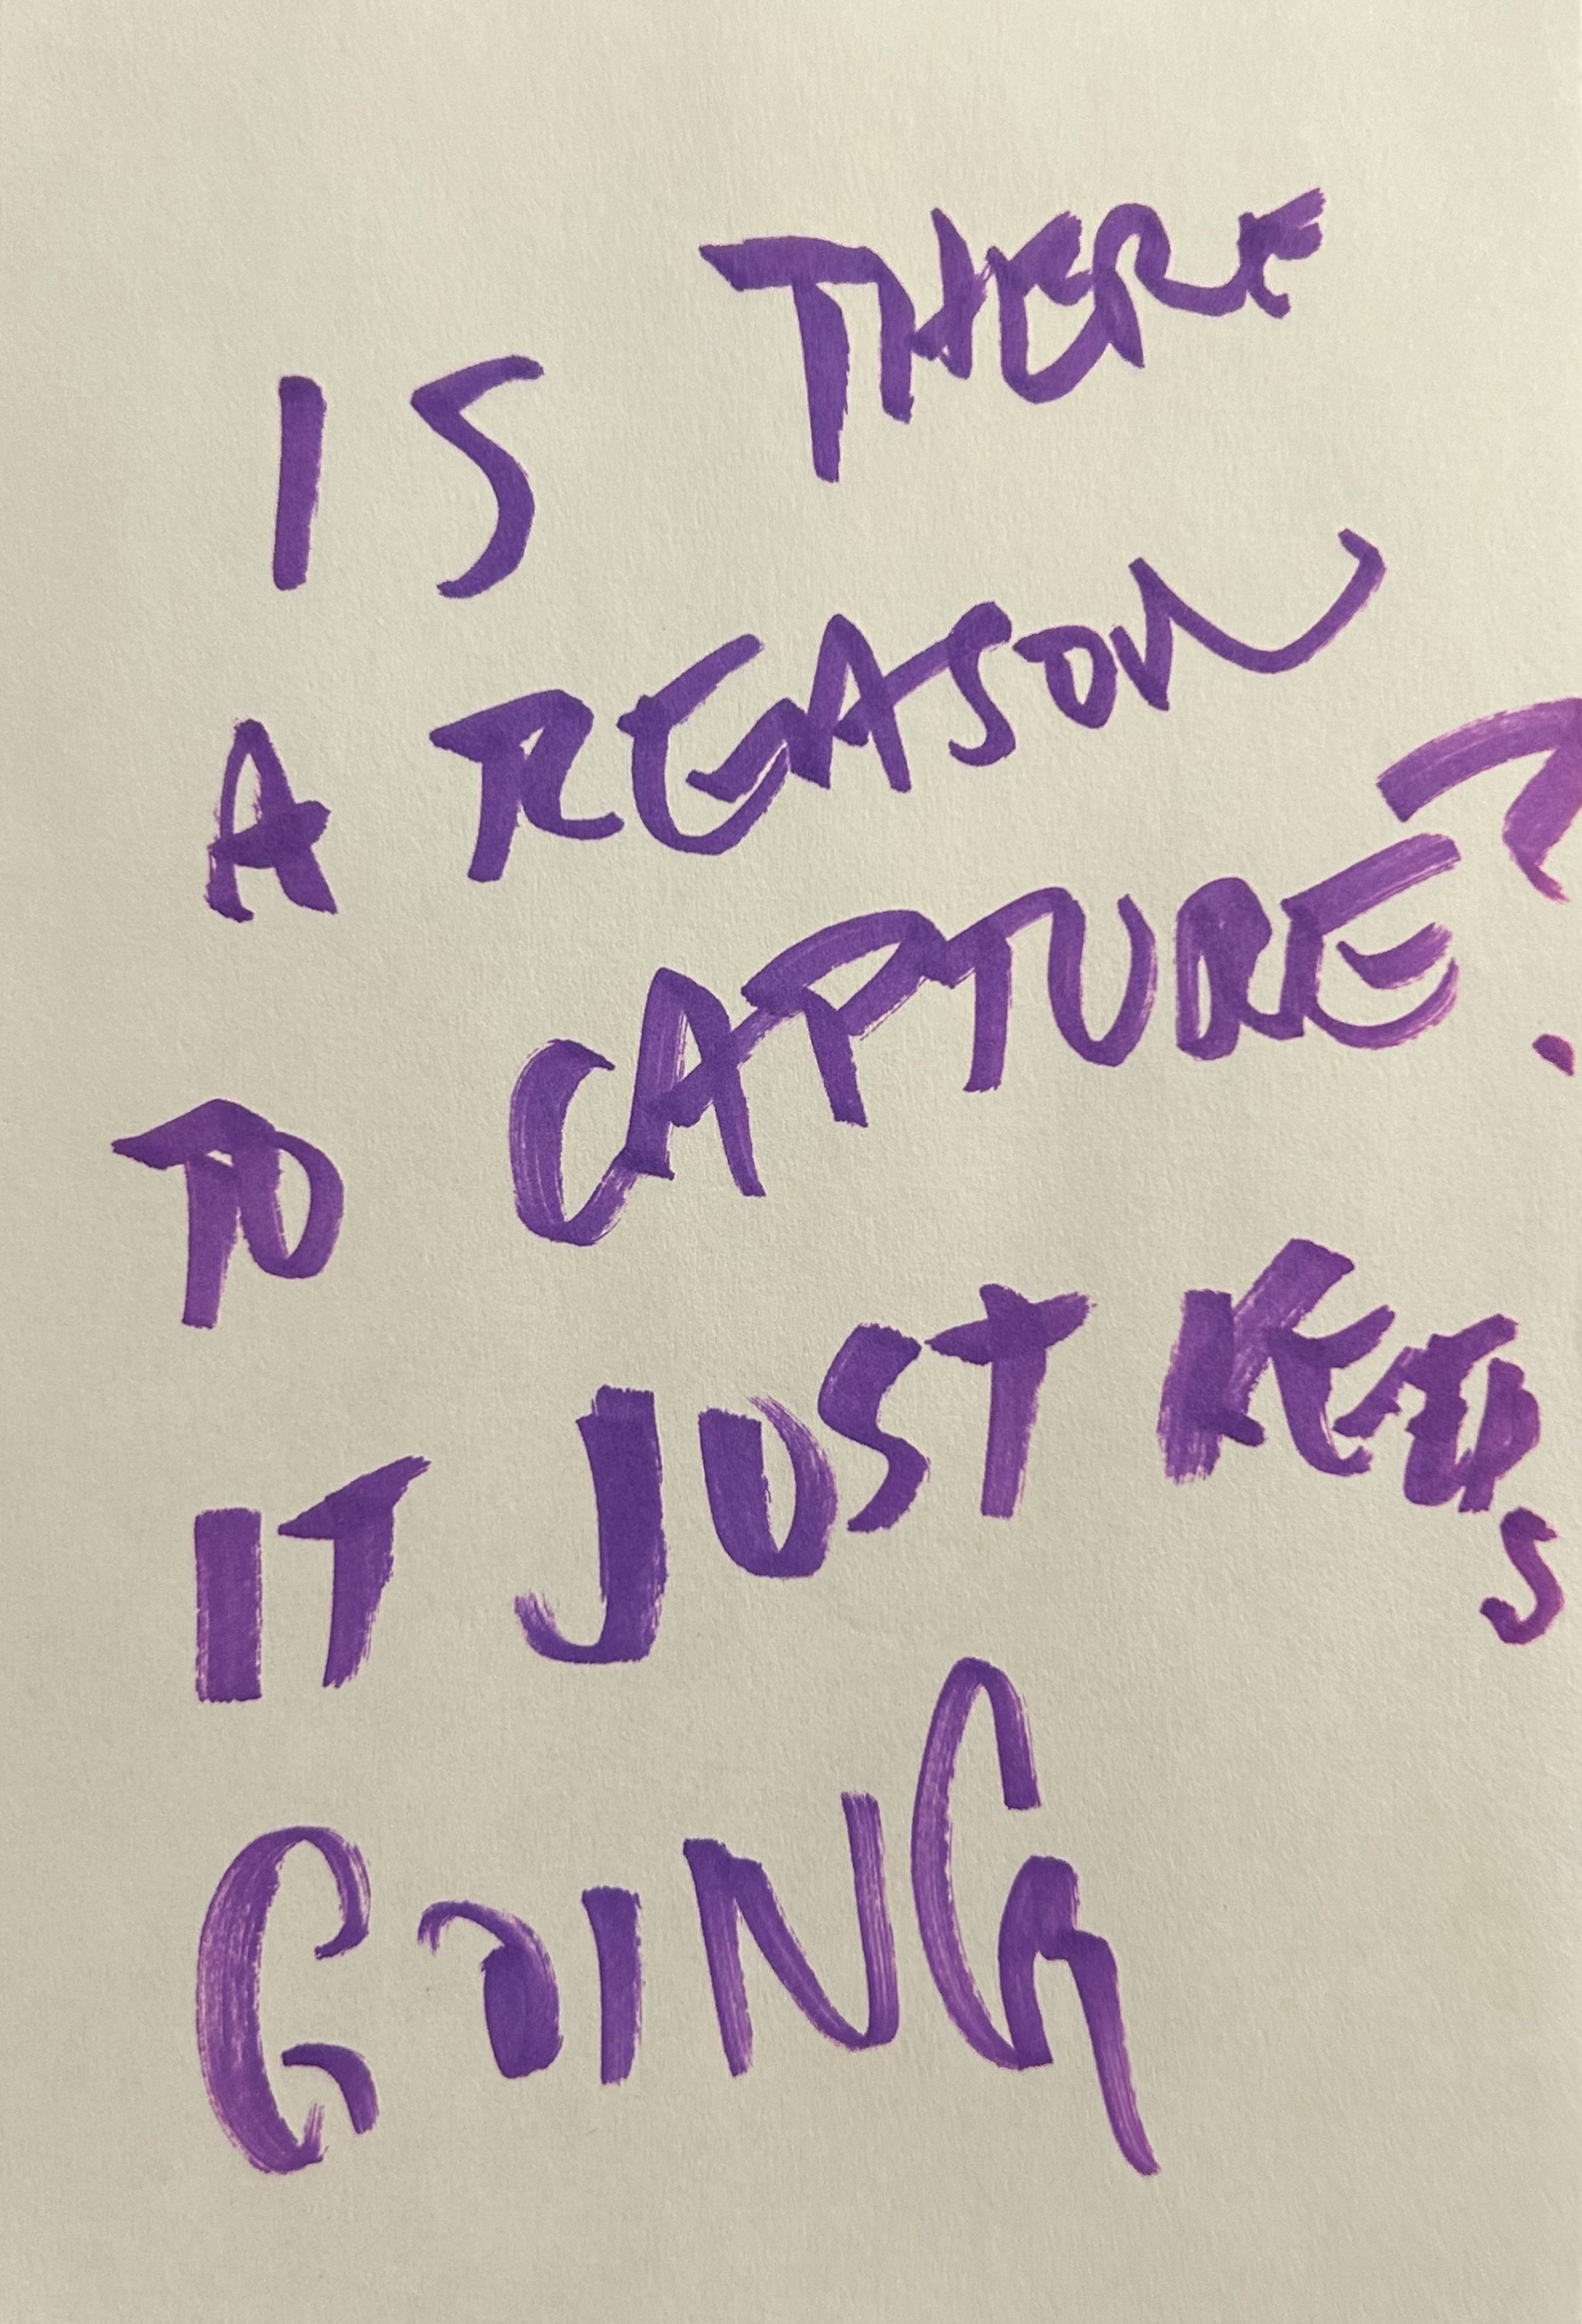 IS THERE
A REASON
TO CAPTURE?
IT JUST KEEPS
GOING